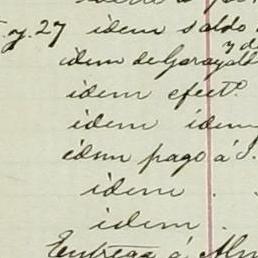 y 27 idem saldo
idem de Garay
idem efect.º
idem idem
idem pago á
idem
idem
Entregas á